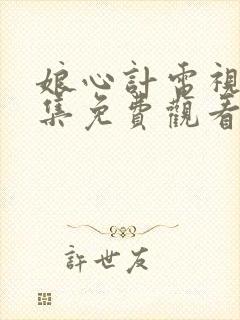 娘心計電視
集免費觀看
許世友